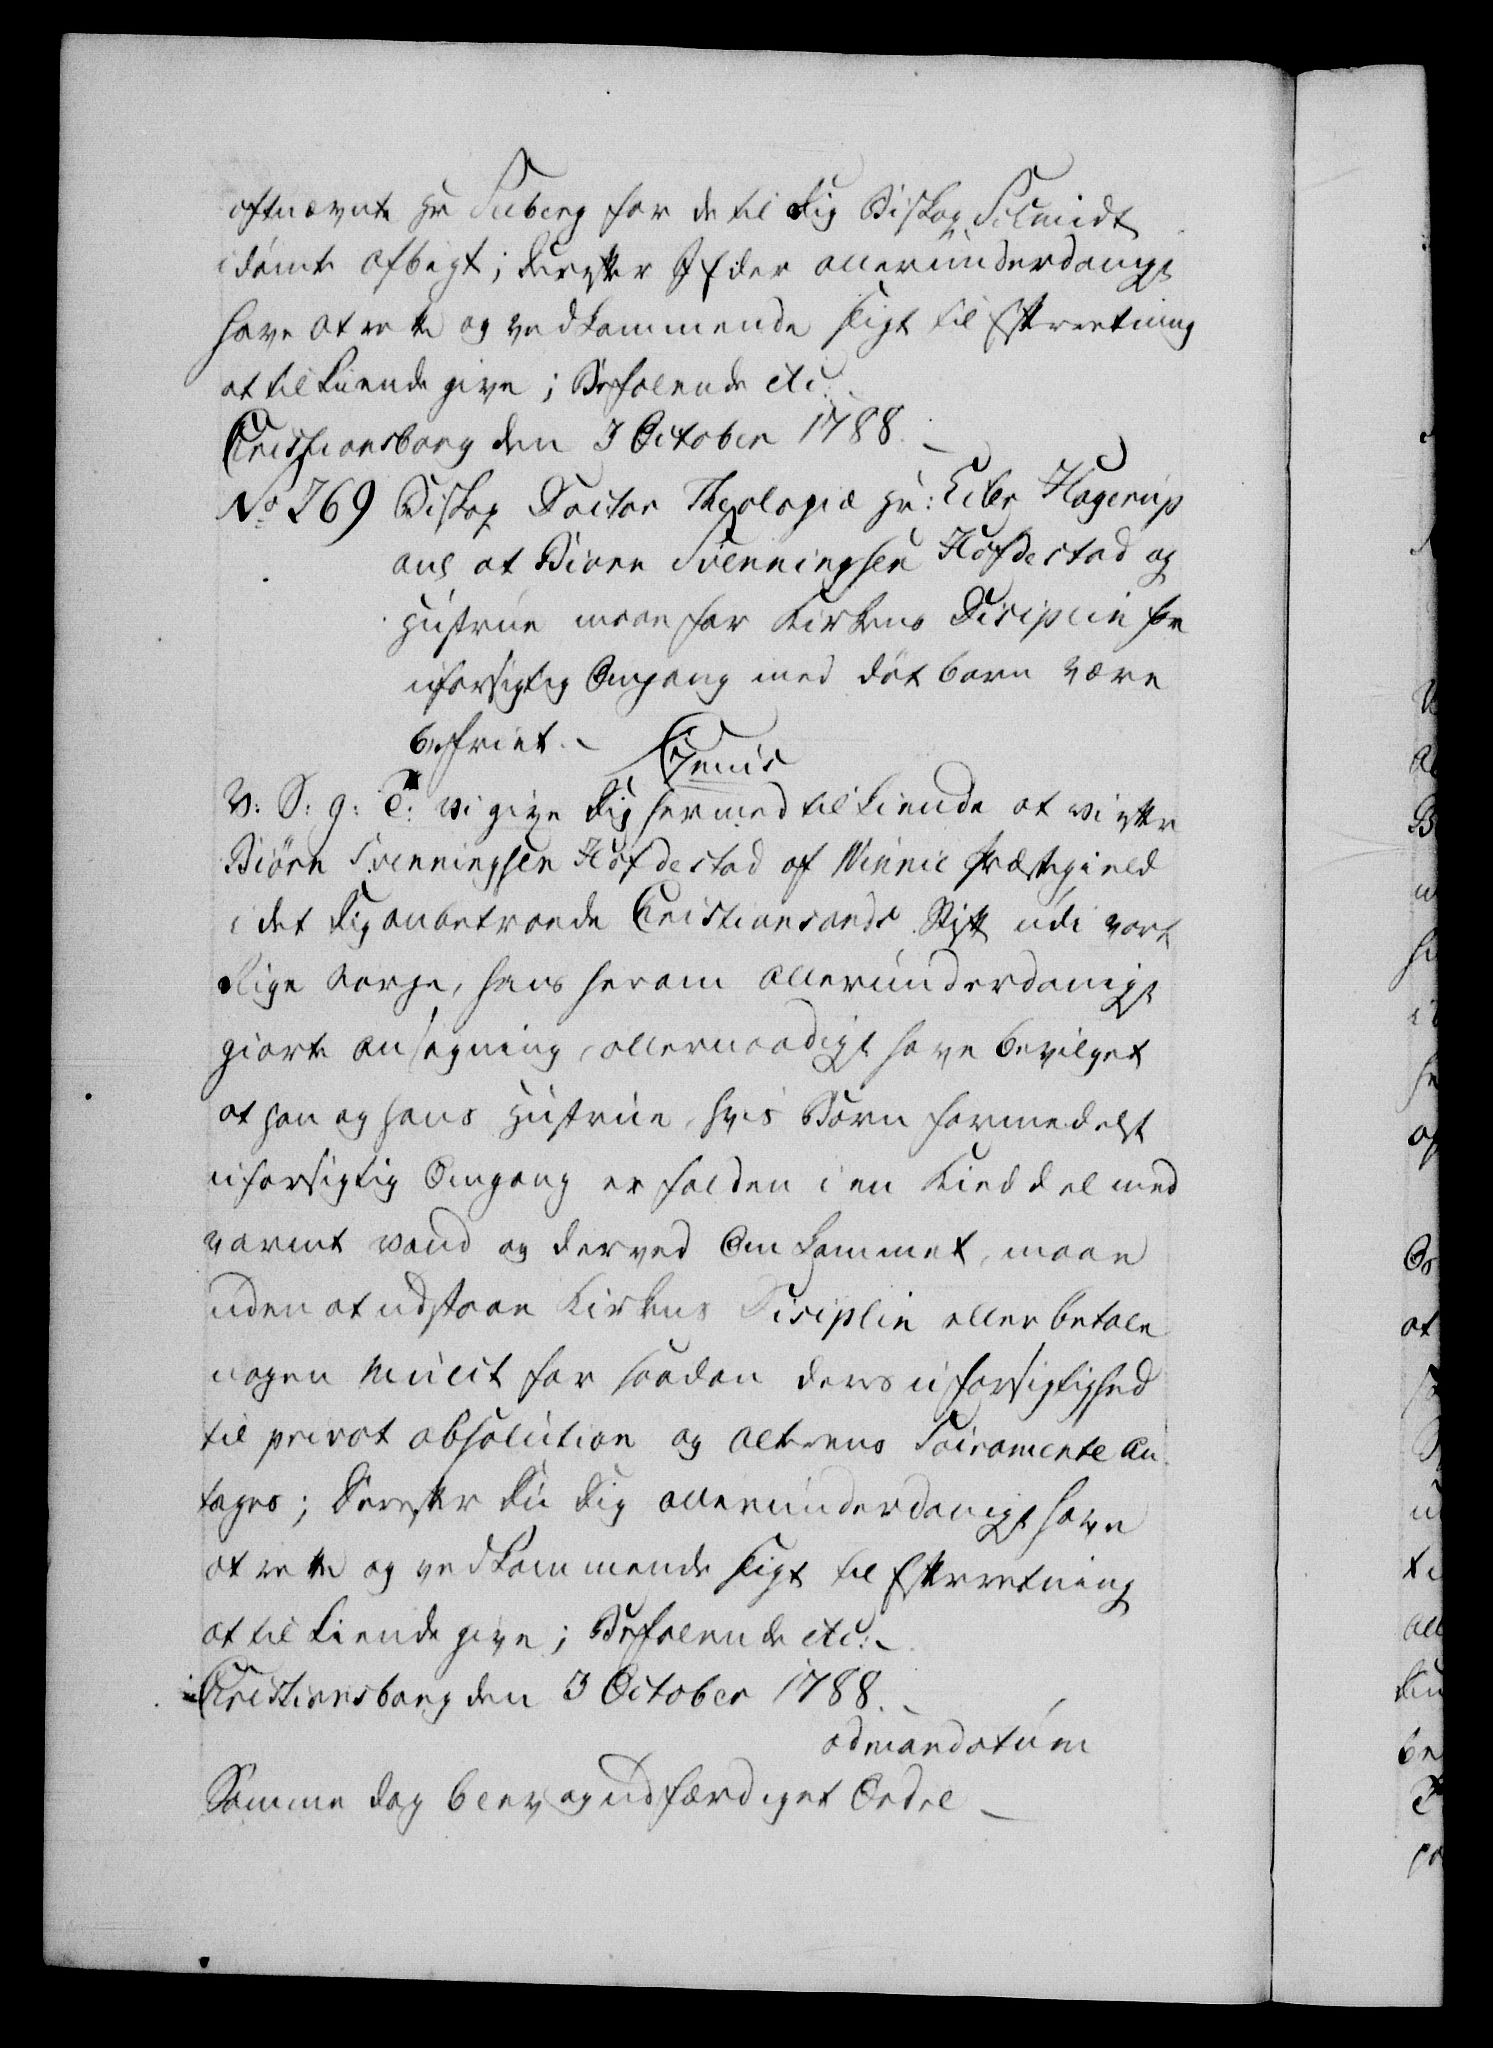 oftnævnte Hr Seeberg for de til Dig Biskop Schmidt
idömte Afbigt; Derefter I Eder allerunderdanigst
have at rette og vedkommende sligt til Efterretning
at tilkiende give; Befalende etc:
Christiansborg den 3 October 1788.
No 769 Biskop Doctor Theologiæ Hr: Eiler Hagerup
anl at Biörn Svenningsen Höfdestad og
Hustrue maae for Kirkens Disiplin for
uforsigtig Omgang med död barn være
befriet. Genis
V: S: g: T: Vi give Dig hermed tilkiende at vi efter
Biörn Svenningsen Höfdestad af Vinnie Præstegield
i det Dig anbetroede Christiansands Stift udi vort
Rige Norge, hans herom allerunderdanigst
giorte Ansögning, allernaadigst have bevilget
at han og hans Hustrue, hvis Barn formedelst
uforsigtig Omgang er falden i en Kieddel med
varmt vand og derved Omkommet, maae
uden at udstaae Kirkens Disiplin eller betale
nogen Mulct for saadan deres uforsigtighed
til privat absolution og Alterens Sacramente an-
tages; Derefter Du Dig allerunderdanigst have
at rette og vedkommende sligt til Efterretning
at tilkiende give; Befalende etc:
Christiansborg den 3 October 1788.
ad mandatum
Samme dag blev og udfærdiget Ordre